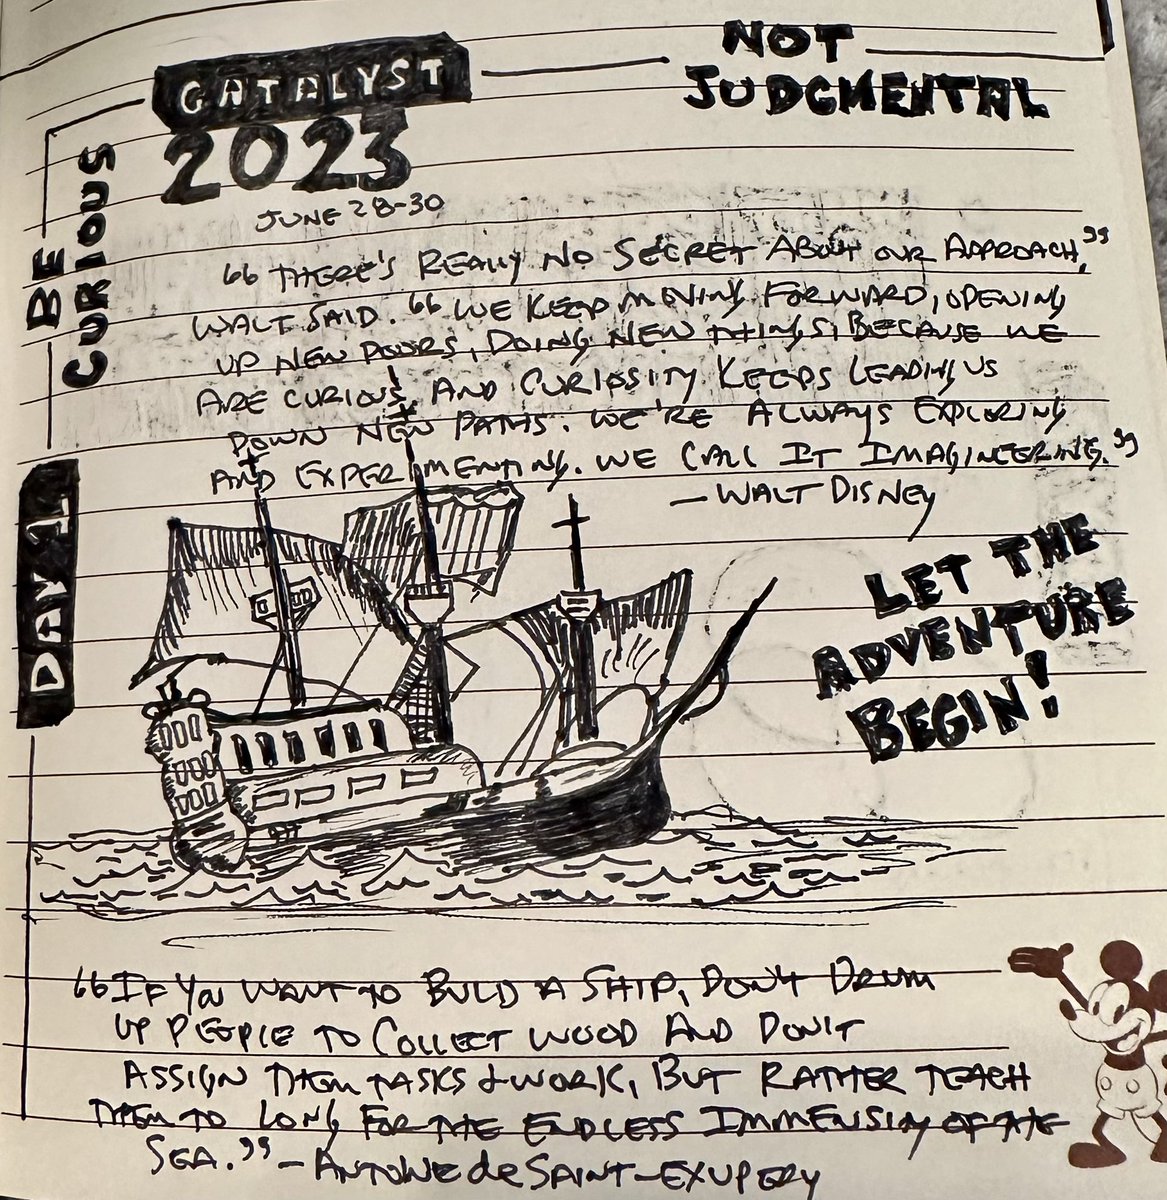 CATALYST
2023
JUNE 28-30
BE
CURIOUS
NOT
JUDGMENTAL
DAY 1
“THERE'S REALLY NO SECRET ABOUT OUR APPROACH,”
WALT SAID. “WE KEEP MOVING FORWARD, OPENING
UP NEW DOORS, DOING NEW THINGS, BECAUSE WE
ARE CURIOUS, AND CURIOSITY KEEPS LEADING US
DOWN NEW PATHS. WE'RE ALWAYS EXPLORING
AND EXPERIMENTING. WE CALL IT IMAGINEERING.”
- WALT DISNEY
LET THE
ADVENTURE
BEGIN!
“IF YOU WANT TO BUILD A SHIP, DON'T DRUM
UP PEOPLE TO COLLECT WOOD AND DON'T
ASSIGN THEM TASKS & WORK, BUT RATHER TEACH
THEM TO LONG FOR THE ENDLESS IMMENSITY OF THE
SEA.” - ANTOINE de SAINT-EXUPERY